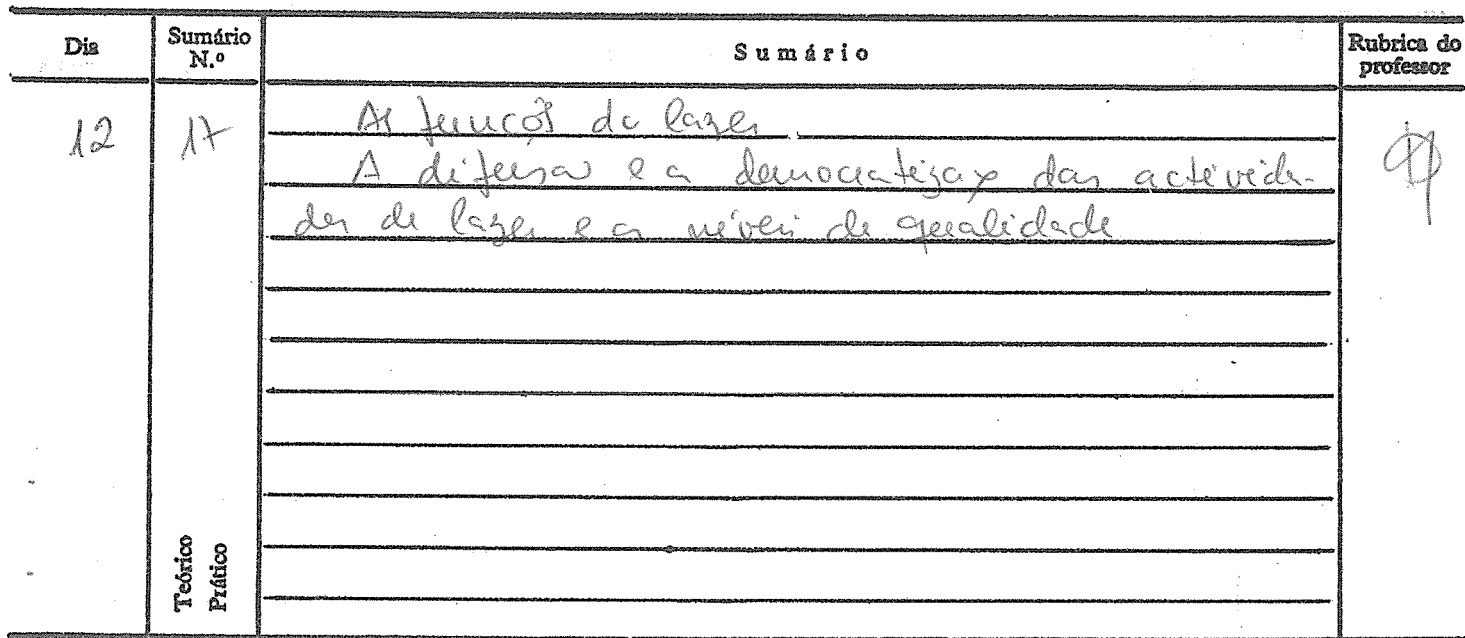 Dia
Sumário N.º
Sumário
Rubrica do professor
12
17
As funções do lazer
A difusão e a democratização das activida-
des de lazer e os níveis de qualidade
Teórico
Prático